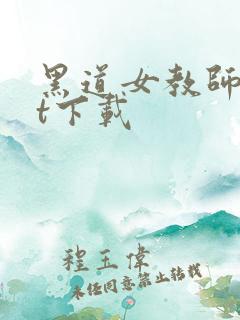 黑道女教師
t下載
程玉偉
未经同意禁止转载